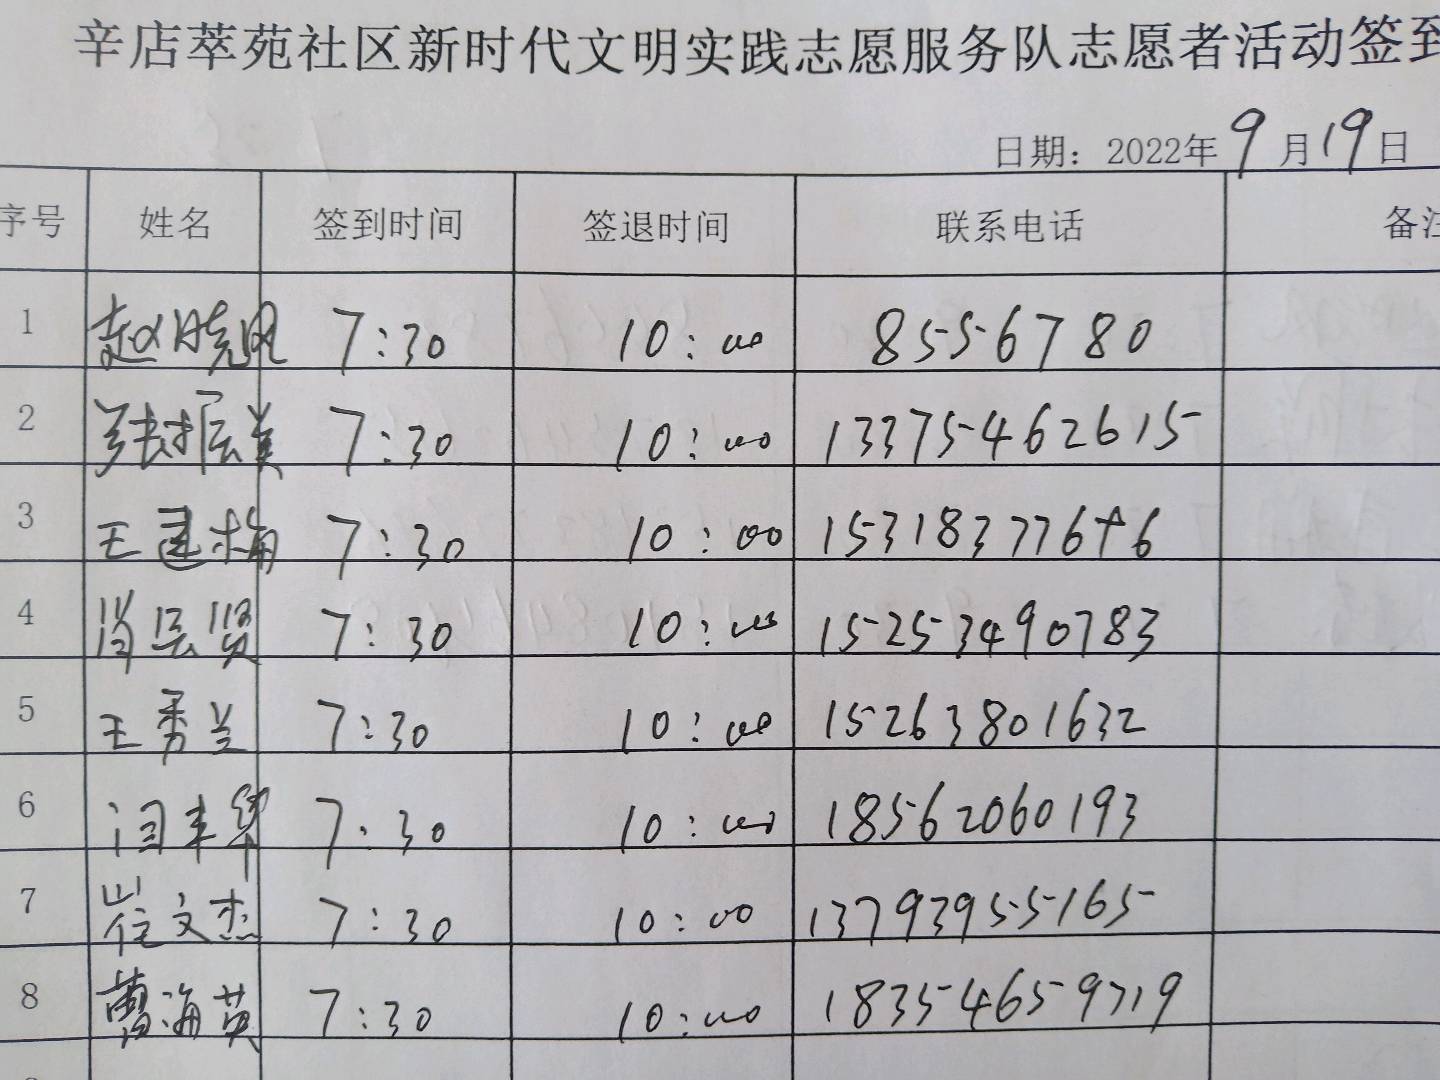 辛店萃苑社区新时代文明实践志愿服务队志愿者活动签到
日期：2022年9月19日
序号 姓名 签到时间 签退时间 联系电话 备注
1 赵晓风 7:30 10:00 8556780
2 张振美 7:30 10:00 13375462615
3 王建梅 7:30 10:00 153183776
4 肖兵贤 7:30 10:00 15253490783
5 王秀兰 7:30 10:00 15263801632
6 闫丰华 7:30 10:00 18562060193
7 崔文杰 7:30 10:00 13793955165
8 曹海英 7:30 10:00 18354659719